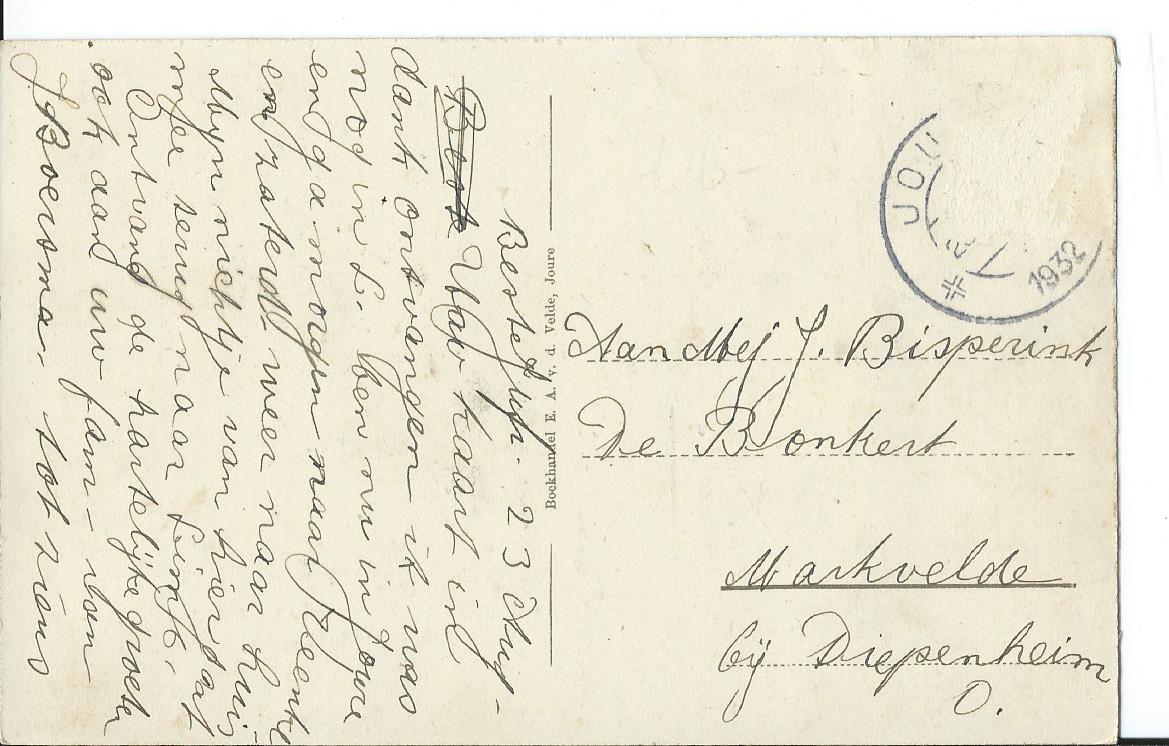 Beste Jufr. 23 Aug-
Beste Uw kaart in
dank ontvangen ik was
nog in L. ben nu in Joure
en ga morgen naar
en zaterd. weer naar huis
Mijn nichtje van hier gaat
mee terug naar
Ontvang de hartelijke groeten
ook aan uw fam- van
J Boersma- tot ziens
Boekhandel E. A. v. d. Velde, Joure
JOU
1932
Aan Mej J. Bisperink
De Bonkert
Markvelde
bij Diepenheim
O.